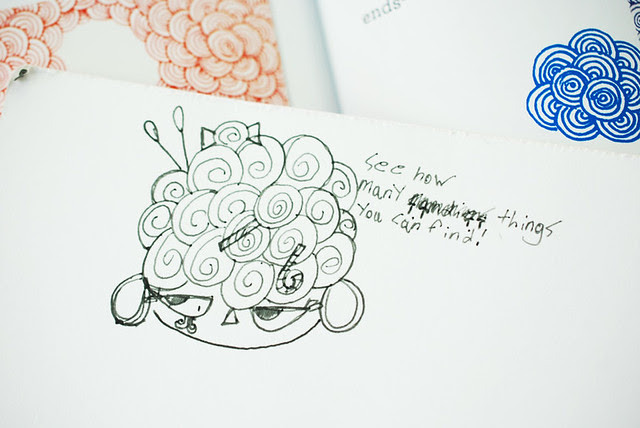 ends-
see how
many things
you can find!